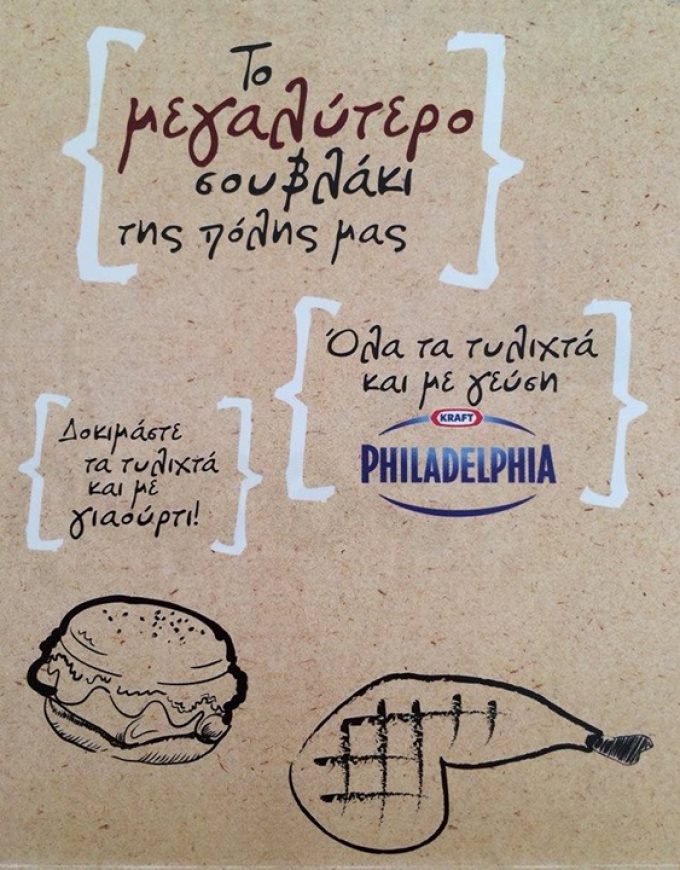 Το
μεγαλύτερο
σουβλάκι
της πόλης μας
Όλα τα τυλιχτά
και με γεύση
KRAFT
PHILADELPHIA
Δοκιμάστε
τα τυλιχτά
και με
γιαούρτι!